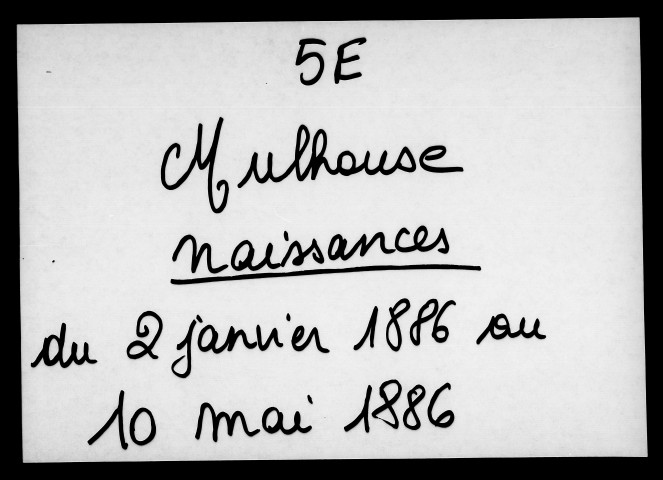 5E
Mulhouse
naissances
du 2 janvier 1886 au
10 mai 1886